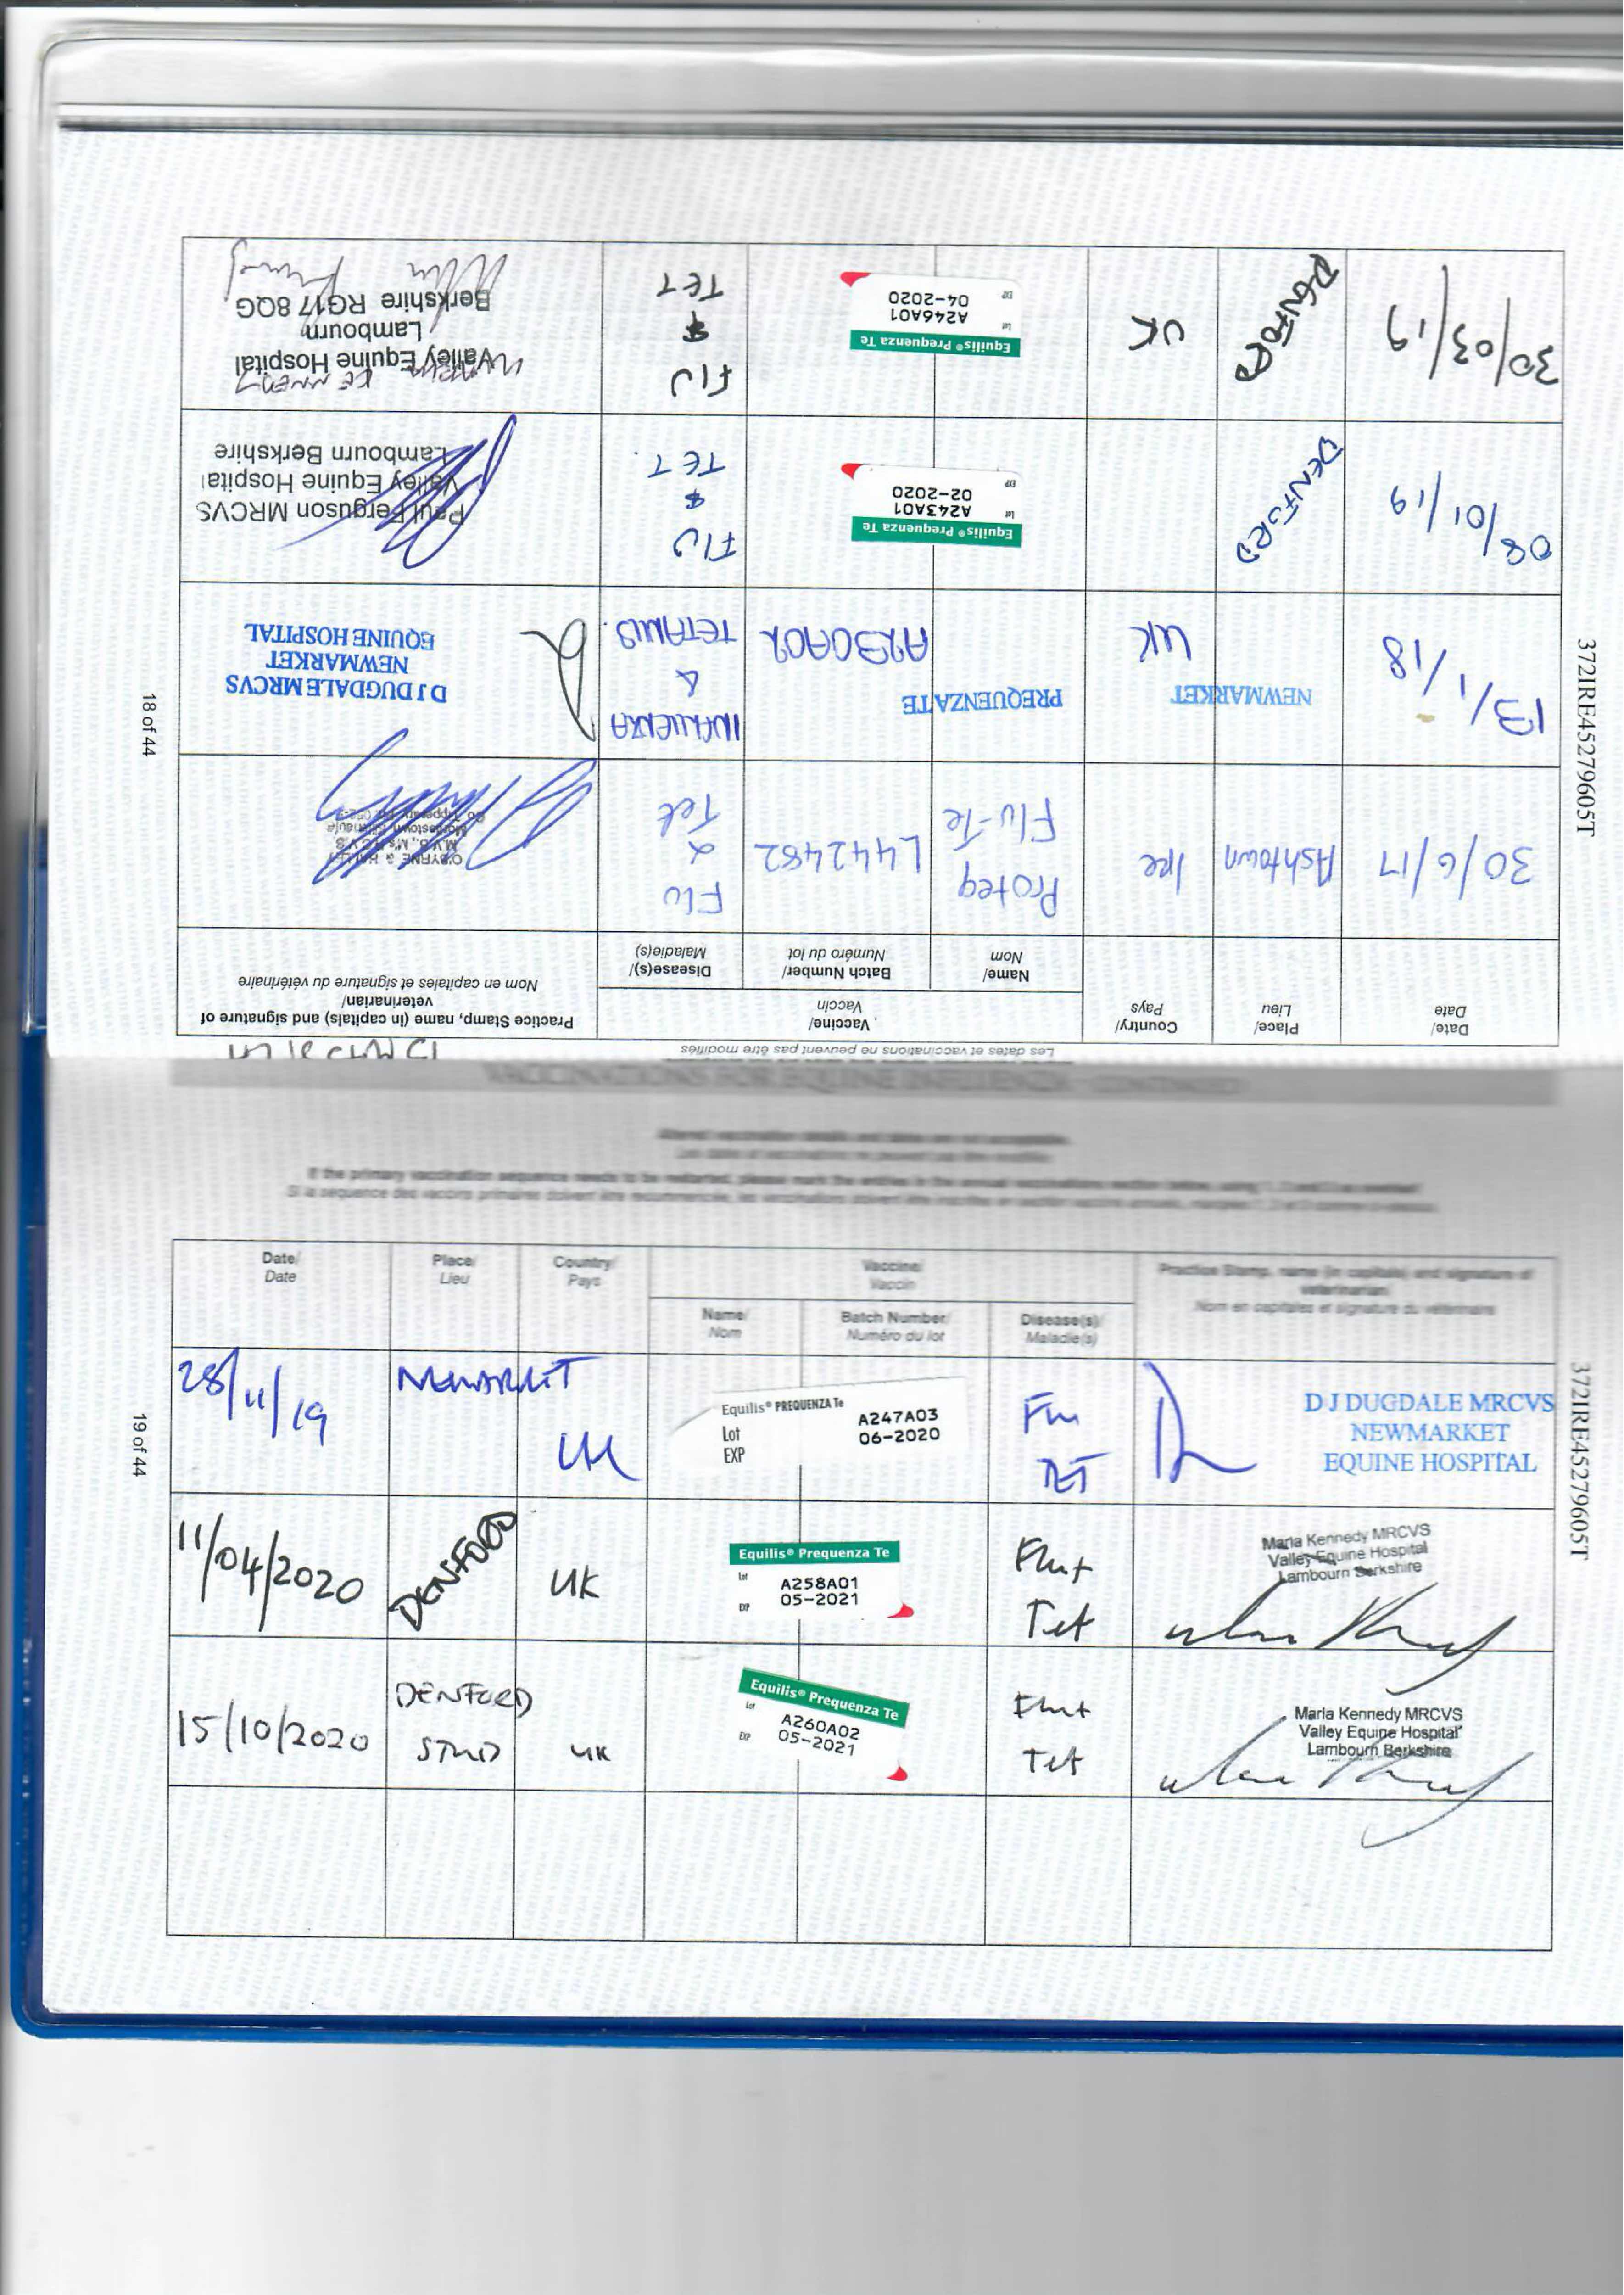 18 of 44
372IRE45279605T
Les dates et vaccinations ne peuvent pas être modifiés
Date/
Date
Place/
Lieu
Country/
Pays
Vaccine/
Vaccin
Practice Stamp, name (in capitals) and signature of
veterinarian/
Nom en capitales et signature du vétérinaire
Name/
Nom
Batch Number/
Numéro du lot
Disease(s)/
Maladie(s)
30/6/17
Ashtown
Ire
Proteq
Flu-Te
L442482
Flu
&
Tet
13/1/18
NEWMARKET
UK
PREQUENZA TE
A230A02
INFLUENZA
&
TETANUS.
D J DUGDALE MRCVS
NEWMARKET
EQUINE HOSPITAL
08/01/19
DENFORD
Equilis® Prequenza Te
Lot A243A01
EXP 02-2020
FLU
&
TET.
Paul Ferguson MRCVS
Valley Equine Hospital
Lambourn Berkshire
30/03/19
DENFORD
UK
Equilis® Prequenza Te
Lot A246A01
EXP 04-2020
FLU
&
TET
Valley Equine Hospital
Lambourn
Berkshire RG17 8QG
If the primary vaccination sequence needs to be restarted, please mark the entries in the annual vaccinations section below, using 1, 2 and 3 as needed
Date/
Date
Place/
Lieu
Country/
Pays
Vaccine/
Vaccin
Practice Stamp, name (in capitals) and signature of
veterinarian/
Nom en capitales et signature du vétérinaire
Name/
Nom
Batch Number/
Numéro du lot
Disease(s)/
Maladie(s)
28/11/19
NEWMARKET
UK
Equilis® PREQUENZA Te
Lot A247A03
EXP 06-2020
Flu
TET
D J DUGDALE MRCVS
NEWMARKET
EQUINE HOSPITAL
11/04/2020
DENFORD
UK
Equilis® Prequenza Te
Lot A258A01
EXP 05-2021
Flu+
Tet
Maria Kennedy MRCVS
Valley Equine Hospital
Lambourn Berkshire
15/10/2020
DENFORD
STUD
UK
Equilis® Prequenza Te
Lot A260A02
EXP 05-2021
Flu+
Tet
Maria Kennedy MRCVS
Valley Equine Hospital
Lambourn Berkshire
19 of 44
372IRE45279605T